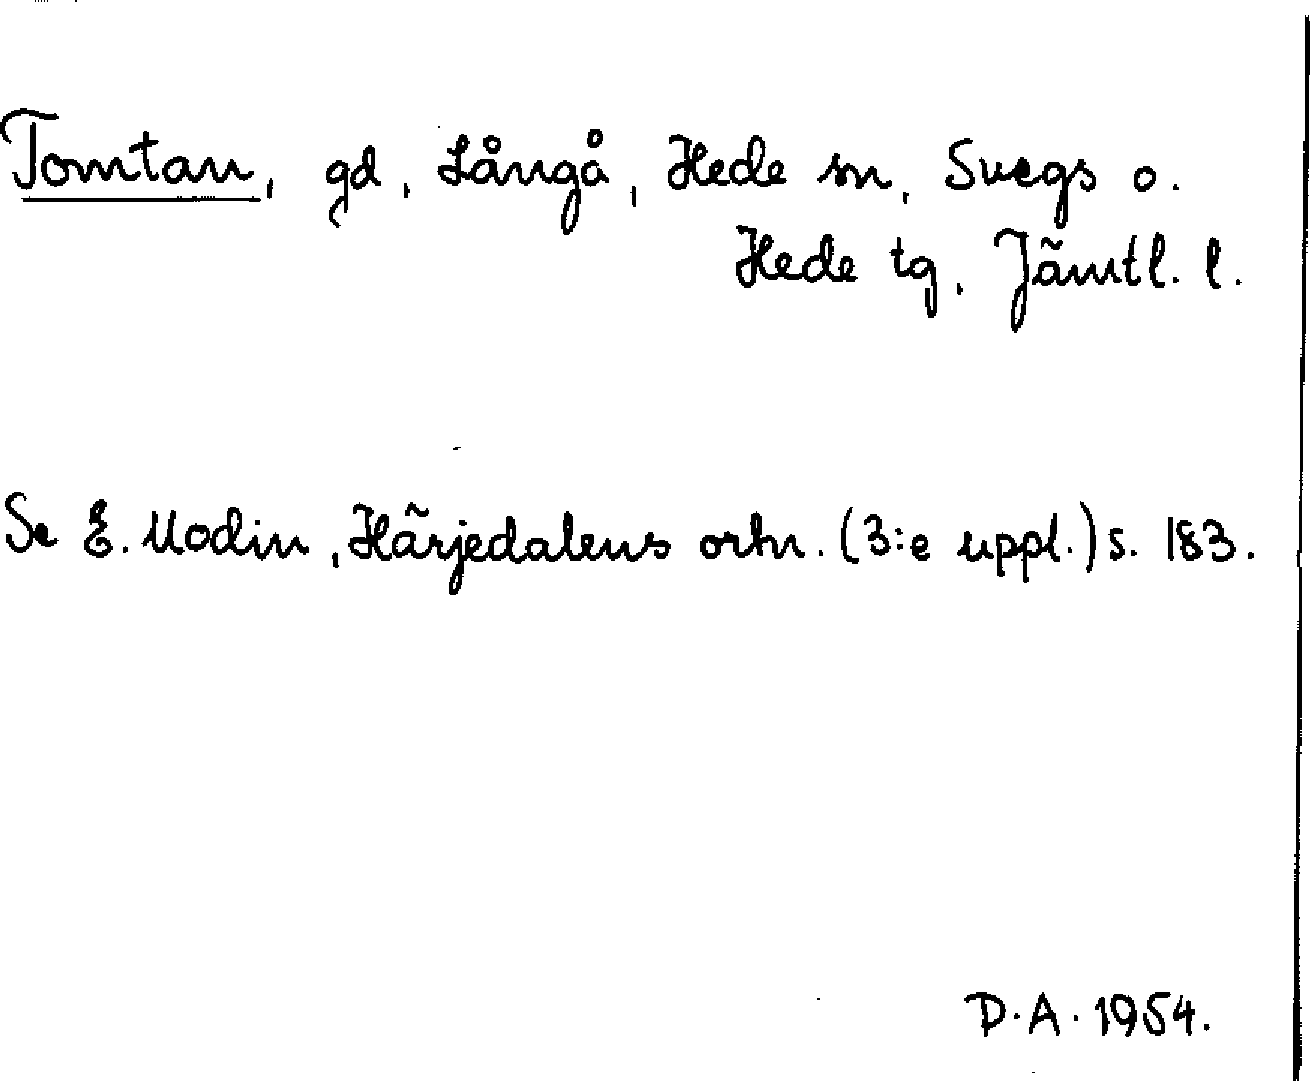 Tomtan, gd, Långå, Hede sn, Svegs o.
Hede tg, Jämtl. l.
Se E. Modin, Härjedalens ortn. (3:e uppl.) s. 183.
D.A. 1954.